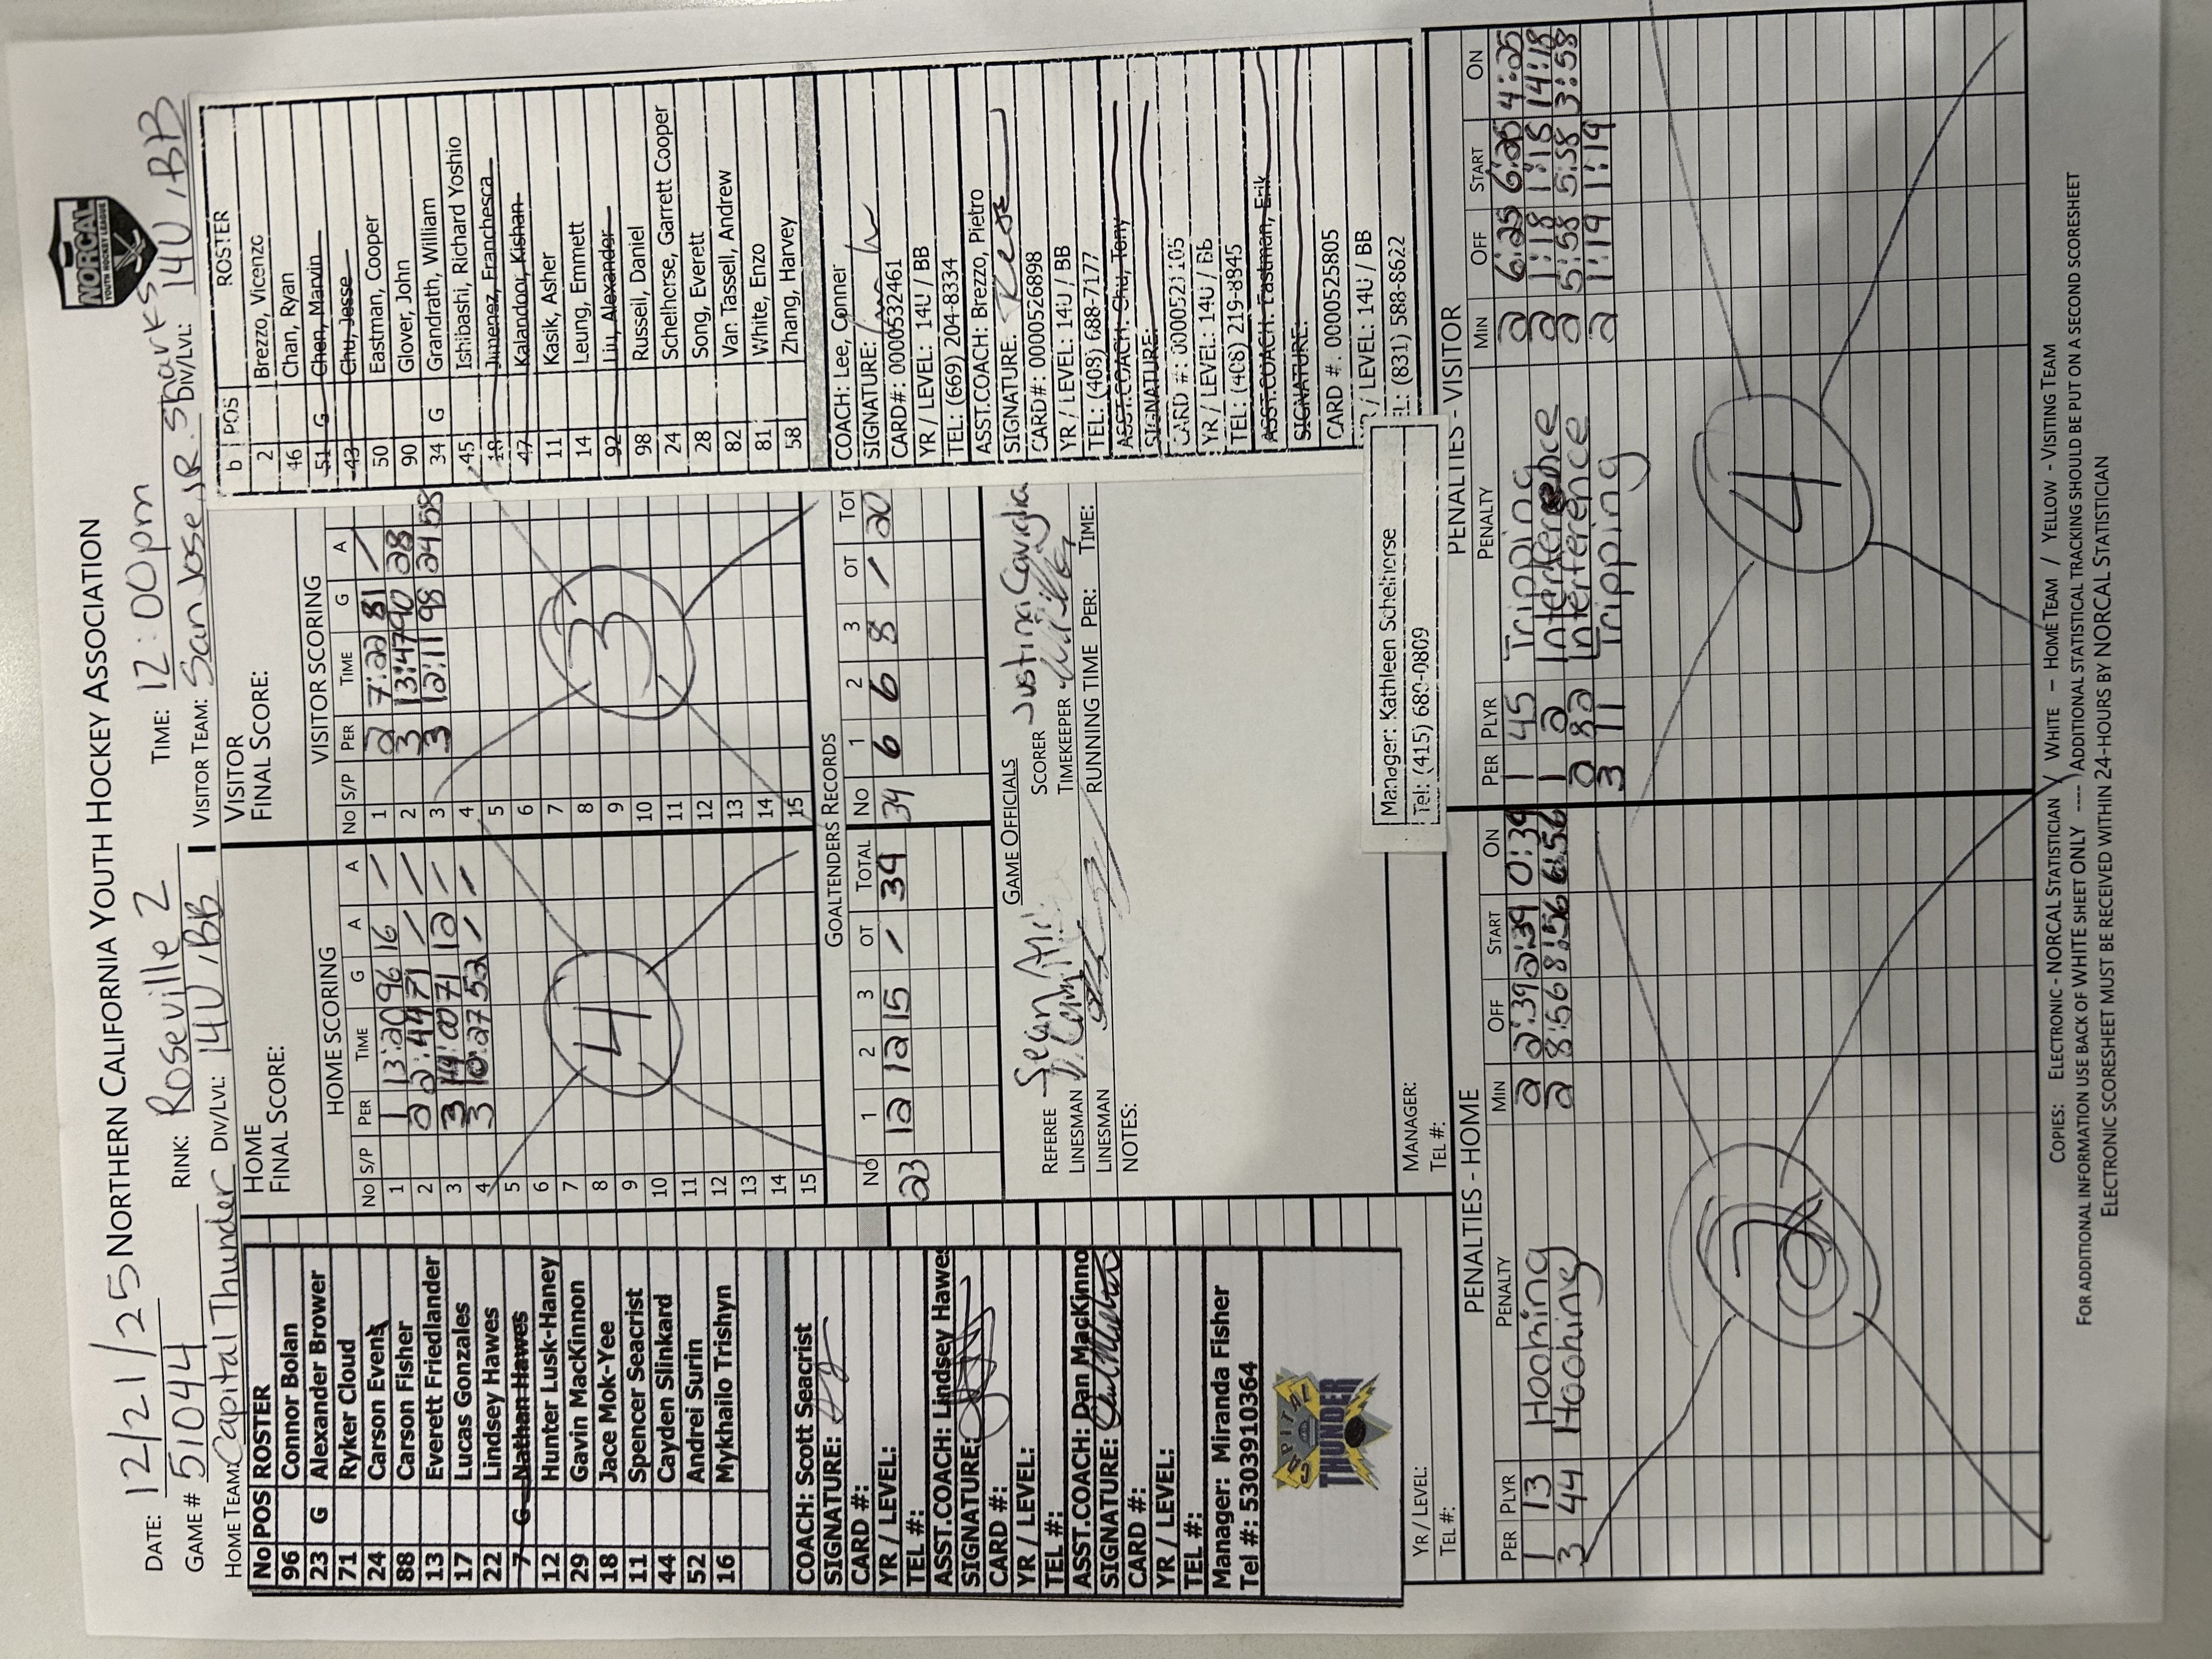 DATE: 12/21/25 NORTHERN CALIFORNIA YOUTH HOCKEY ASSOCIATION
NORCAL
YOUTH HOCKEY LEAGUE
GAME # 51044 RINK: Roseville 2 TIME: 12:00pm
HOME TEAM: Capital Thunder DIV/LVL: 14U, BB VISITOR TEAM: San Jose JR. Sharks DIV/LVL: 14U, BB
No POS ROSTER
96 Connor Bolan
23 G Alexander Brower
71 Ryker Cloud
24 Carson Evens
88 Carson Fisher
13 Everett Friedlander
17 Lucas Gonzales
22 Lindsey Hawes
7 G Nathan Hawes
12 Hunter Lusk-Haney
29 Gavin MacKinnon
18 Jace Mok-Yee
11 Spencer Seacrist
44 Cayden Slinkard
52 Andrei Surin
16 Mykhailo Trishyn
COACH: Scott Seacrist
SIGNATURE:
CARD #:
YR / LEVEL:
TEL #:
ASST.COACH: Lindsey Hawes
SIGNATURE:
CARD #:
YR / LEVEL:
TEL #:
ASST.COACH: Dan MacKinno
SIGNATURE:
CARD #:
YR / LEVEL:
TEL #:
Manager: Miranda Fisher
Tel #: 5303910364
CAPITAL
THUNDER
YR / LEVEL:
TEL #:
HOME
FINAL SCORE:
HOME SCORING
No S/P PER TIME G A A
1 1 13:20 96 16 /
2 2 2:44 71 / /
3 3 14:00 71 12 /
4 3 10:27 52 / /
5
6
7
8
9
10
11
12
13
14
15
4
VISITOR
FINAL SCORE:
VISITOR SCORING
No S/P PER TIME G A
1 2 7:22 81 /
2 3 13:47 90 28
3 3 12:11 98 24 58
4
5
6
7
8
9
10
11
12
13
14
15
3
GOALTENDERS RECORDS
No 1 2 3 OT TOTAL No 1 2 3 OT TOT
23 12 12 15 / 39 34 6 6 8 / 20
GAME OFFICIALS
REFEREE Sean SCORER Justina
LINESMAN TIMEKEEPER
LINESMAN RUNNING TIME PER: TIME:
NOTES:
MANAGER:
TEL #:
b POS ROSTER
2 Brezzo, Vicenzo
46 Chan, Ryan
51 G Chen, Marvin
43 Chu, Jesse
50 Eastman, Cooper
90 Glover, John
34 G Grandrath, William
45 Ishibashi, Richard Yoshio
18 Jimenez, Franchesca
47 Kalandoor, Kishan
11 Kasik, Asher
14 Leung, Emmett
92 Liu, Alexander
98 Russell, Daniel
24 Schelhorse, Garrett Cooper
28 Song, Everett
82 Van Tassell, Andrew
81 White, Enzo
58 Zhang, Harvey
COACH: Lee, Conner
SIGNATURE:
CARD#: 0000532461
YR / LEVEL: 14U / BB
TEL: (669) 204-8334
ASST.COACH: Brezzo, Pietro
SIGNATURE:
CARD#: 0000526898
YR / LEVEL: 14U / BB
TEL: (408) 688-7177
ASST.COACH: Chu, Tony
SIGNATURE:
CARD #: 0000523105
YR / LEVEL: 14U / BB
TEL: (408) 219-8845
ASST.COACH: Eastman, Erik
SIGNATURE:
CARD #. 0000525805
YR / LEVEL: 14U / BB
TEL: (831) 588-8622
Manager: Kathleen Schelhorse
Tel: (415) 680-0809
PENALTIES - HOME
PER PLYR PENALTY MIN OFF START ON
1 13 Hooking 2 2:39 2:39 0:39
3 44 Hooking 2 8:56 8:56 6:56
2
PENALTIES - VISITOR
PER PLYR PENALTY MIN OFF START ON
1 45 Tripping 2 6:25 6:25 4:25
1 2 Interference 2 1:18 1:18 14:18
2 82 Interference 2 5:58 5:58 3:58
3 11 Tripping 2 1:19 1:19
4
COPIES: ELECTRONIC - NORCAL STATISTICIAN / WHITE – HOME TEAM / YELLOW - VISITING TEAM
FOR ADDITIONAL INFORMATION USE BACK OF WHITE SHEET ONLY ---- ADDITIONAL STATISTICAL TRACKING SHOULD BE PUT ON A SECOND SCORESHEET
ELECTRONIC SCORESHEET MUST BE RECEIVED WITHIN 24-HOURS BY NORCAL STATISTICIAN